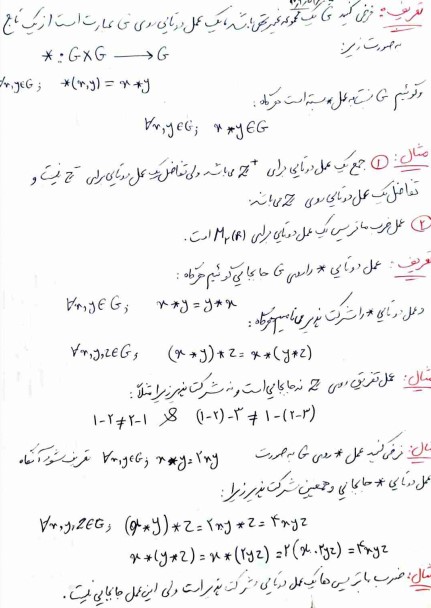 تعریف: فرض کنید G یک مجموعه غیرتهی باشد، یک عمل دوتایی روی G عبارت است از یک تابع
به صورت زیر:
* : G×G ⟶ G
∀x,y∈G ; *(x,y) = x*y
و گوئیم G نسبت به عمل * بسته است هرگاه:
∀x,y∈G ; x*y∈G
مثال: ① جمع یک عمل دوتایی برای Z⁺ می باشد ولی تفاضل یک عمل دوتایی برای Z⁺ نیست و
تفاضل یک عمل دوتایی روی Z می باشد.
② عمل ضرب ماتریس یک عمل دوتایی برای M₂(R) است.
تعریف: عمل دوتایی * را روی G جابجایی گوئیم هرگاه:
∀x,y∈G ; x*y = y*x
و عمل دوتایی * را شرکت پذیر می نامیم هرگاه:
∀x,y,z∈G ; (x*y)*z = x*(y*z)
مثال: عمل تفریق روی Z نه جابجایی است و نه شرکت پذیر زیرا مثلاً:
۱-۲≠۲-۱ & (۱-۲)-۳ ≠ ۱-(۲-۳)
مثال: فرض کنید عمل * روی G به صورت ∀x,y∈G ; x*y=۲xy تعریف شود آنگاه
عمل دوتایی * جابجایی و همچنین شرکت پذیر زیرا:
∀x,y,z∈G ; (x*y)*z = ۲xy*z = ۴xyz
x*(y*z) = x*(۲yz) = ۲(x.۲yz) = ۴xyz
مثال: ضرب ماتریس ها یک عمل دوتایی و شرکت پذیر است ولی این عمل جابجایی نیست.